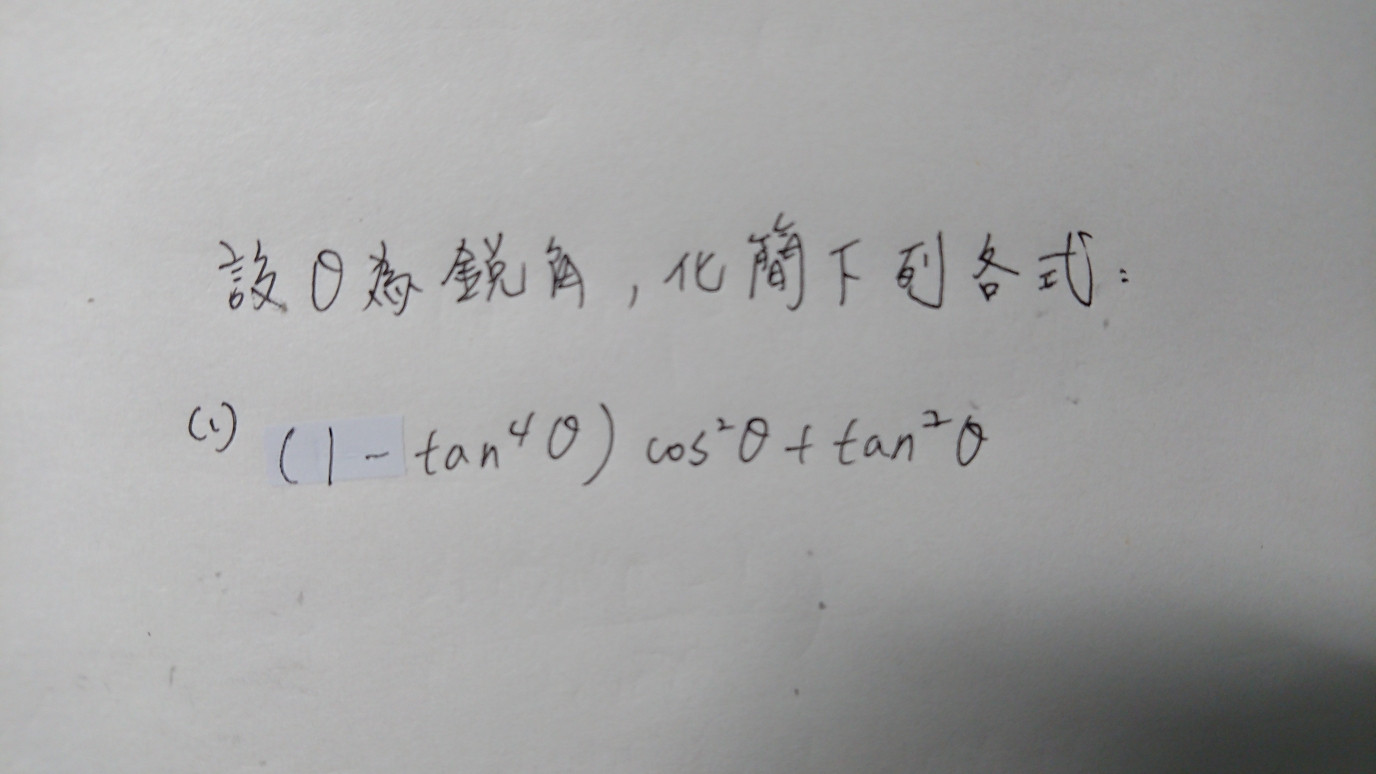 設θ為鋭角,化簡下列各式:
(1) (1-tan⁴θ) cos²θ+tan²θ